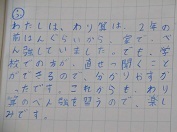 ③
わたしは、わり算は、2年の
前はんぐらいから、家で、べ
ん強していました。でも、学
校での方が、直せつ聞くこと
ができるので、分かりやすか
ったです。これからも、わり
算のべん強を習うので、楽し
みです。